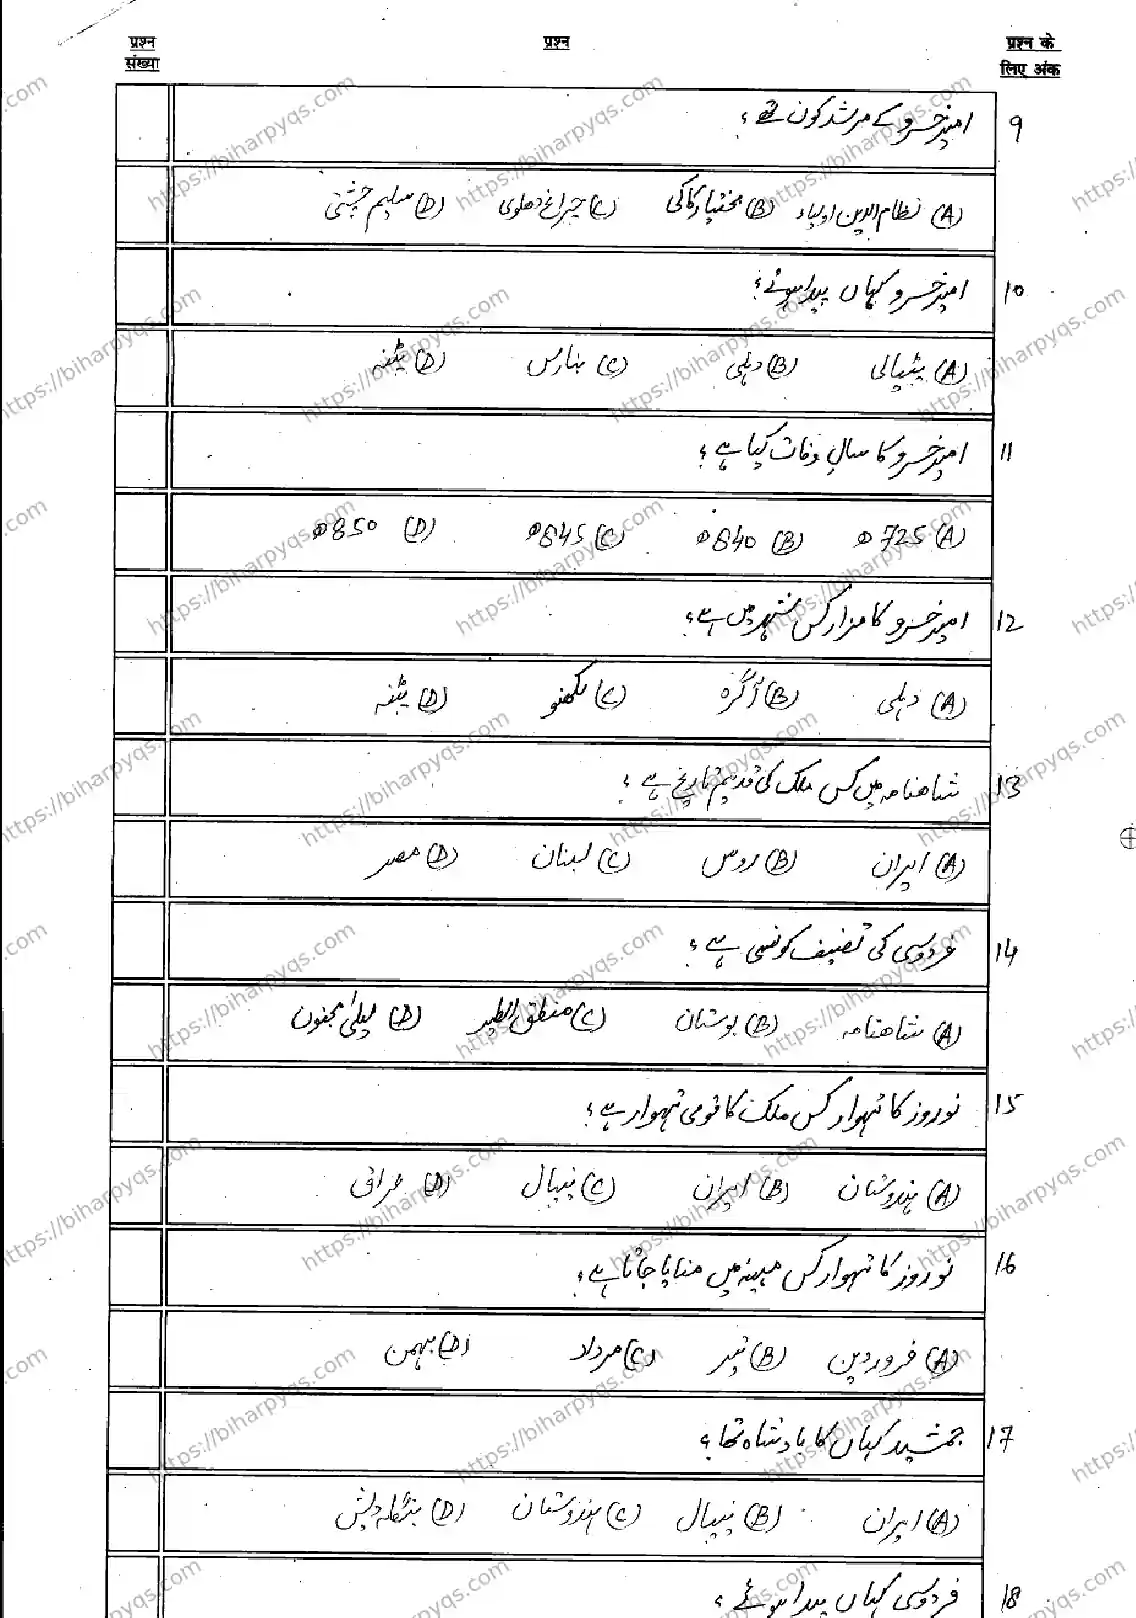 प्रश्न संख्या
प्रश्न
प्रश्न के लिए अंक
9 امیر خسرو کے مرشد کون تھے؟
(A) نظام الدین اولیاء (B) بختیار کاکی (C) چراغ دہلوی (D) سلیم چشتی
10 امیر خسرو کہاں پیدا ہوئے؟
(A) پٹیالی (B) دہلی (C) بنارس (D) پٹنہ
11 امیر خسرو کا سالِ وفات کیا ہے؟
(A) 725ھ (B) 840ھ (C) 845ھ (D) 850ھ
12 امیر خسرو کا مزار کس شہر میں ہے؟
(A) دہلی (B) آگرہ (C) لکھنو (D) پٹنہ
13 شاہنامہ میں کس ملک کی قدیم تاریخ ہے؟
(A) ایران (B) روس (C) لبنان (D) مصر
14 فردوسی کی تصنیف کونسی ہے؟
(A) شاہنامہ (B) بوستان (C) منطق الطیر (D) لیلیٰ مجنوں
15 نوروز کا تہوار کس ملک کا قومی تہوار ہے؟
(A) ہندوستان (B) ایران (C) نیپال (D) عراق
16 نوروز کا تہوار کس مہینہ میں منایا جاتا ہے؟
(A) فروردین (B) تیر (C) مرداد (D) بہمن
17 جمشید کہاں کا بادشاہ تھا؟
(A) ایران (B) نیپال (C) ہندوستان (D) بنگلہ دیش
18 فردوسی کہاں پیدا ہوئے؟
https://biharpyqs.com